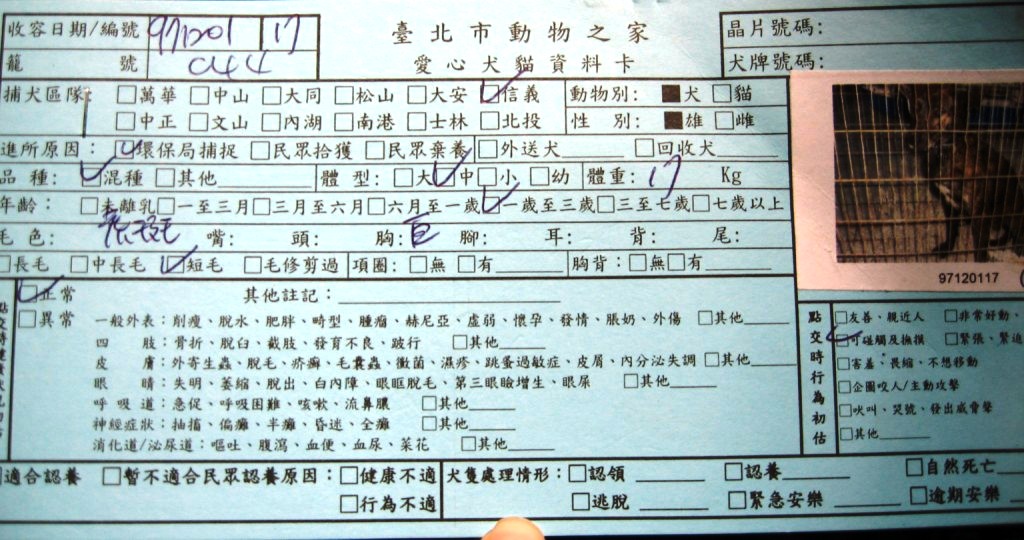 收容日期/編號 971201 17
臺北市動物之家
晶片號碼:
籠 號 C44
愛心犬貓資料卡
犬牌號碼:
捕犬區隊 □萬華 □中山 □大同 □松山 □大安 ☑信義 動物別: ■犬 □貓
□中正 □文山 □內湖 □南港 □士林 □北投 性 別: ■雄 □雌
進所原因: ☑環保局捕捉 □民眾拾獲 □民眾棄養 □外送犬 □回收犬
品種: ☑混種 □其他 體 型: □大 ☑中 □小 □幼 體重: 17 Kg
年齡: □未離乳 □一至三月 □三月至六月 □六月至一歲 ☑一歲至三歲 □三至七歲 □七歲以上
毛色: 虎斑 嘴: 頭: 胸: 白 腳: 耳: 背: 尾:
□長毛 □中長毛 ☑短毛 □毛修剪過 項圈: □無 □有 胸背: □無 □有
97120117
☑正常 其他註記:
□異常 一般外表: 削瘦、脫水、肥胖、畸型、腫瘤、赫尼亞、虛弱、懷孕、發情、脹奶、外傷 □其他
四 肢: 骨折、脫臼、截肢、發育不良、跛行 □其他
皮 膚: 外寄生蟲、脫毛、疥癬、毛囊蟲、黴菌、濕疹、跳蚤過敏症、皮屑、內分泌失調 □其他
眼 睛: 失明、萎縮、脫出、白內障、眼眶脫毛、第三眼瞼增生、眼屎 □其他
呼吸道: 急促、呼吸困難、咳嗽、流鼻膿 □其他
神經症狀: 抽搐、偏癱、半癱、昏迷、全癱 □其他
消化道/泌尿道: 嘔吐、腹瀉、血便、血尿、菜花 □其他
點交時行為初估
□友善、親近人 □非常好動、
☑可碰觸及撫摸 □緊張、緊迫
□害羞、畏縮、不想移動
□企圖咬人/主動攻擊
□吠叫、哭號、發出威脅聲
□其他
適合認養 □暫不適合民眾認養原因: □健康不適 犬隻處理情形: □認領 □認養 □自然死亡
□行為不適 □逃脫 □緊急安樂 □逾期安樂